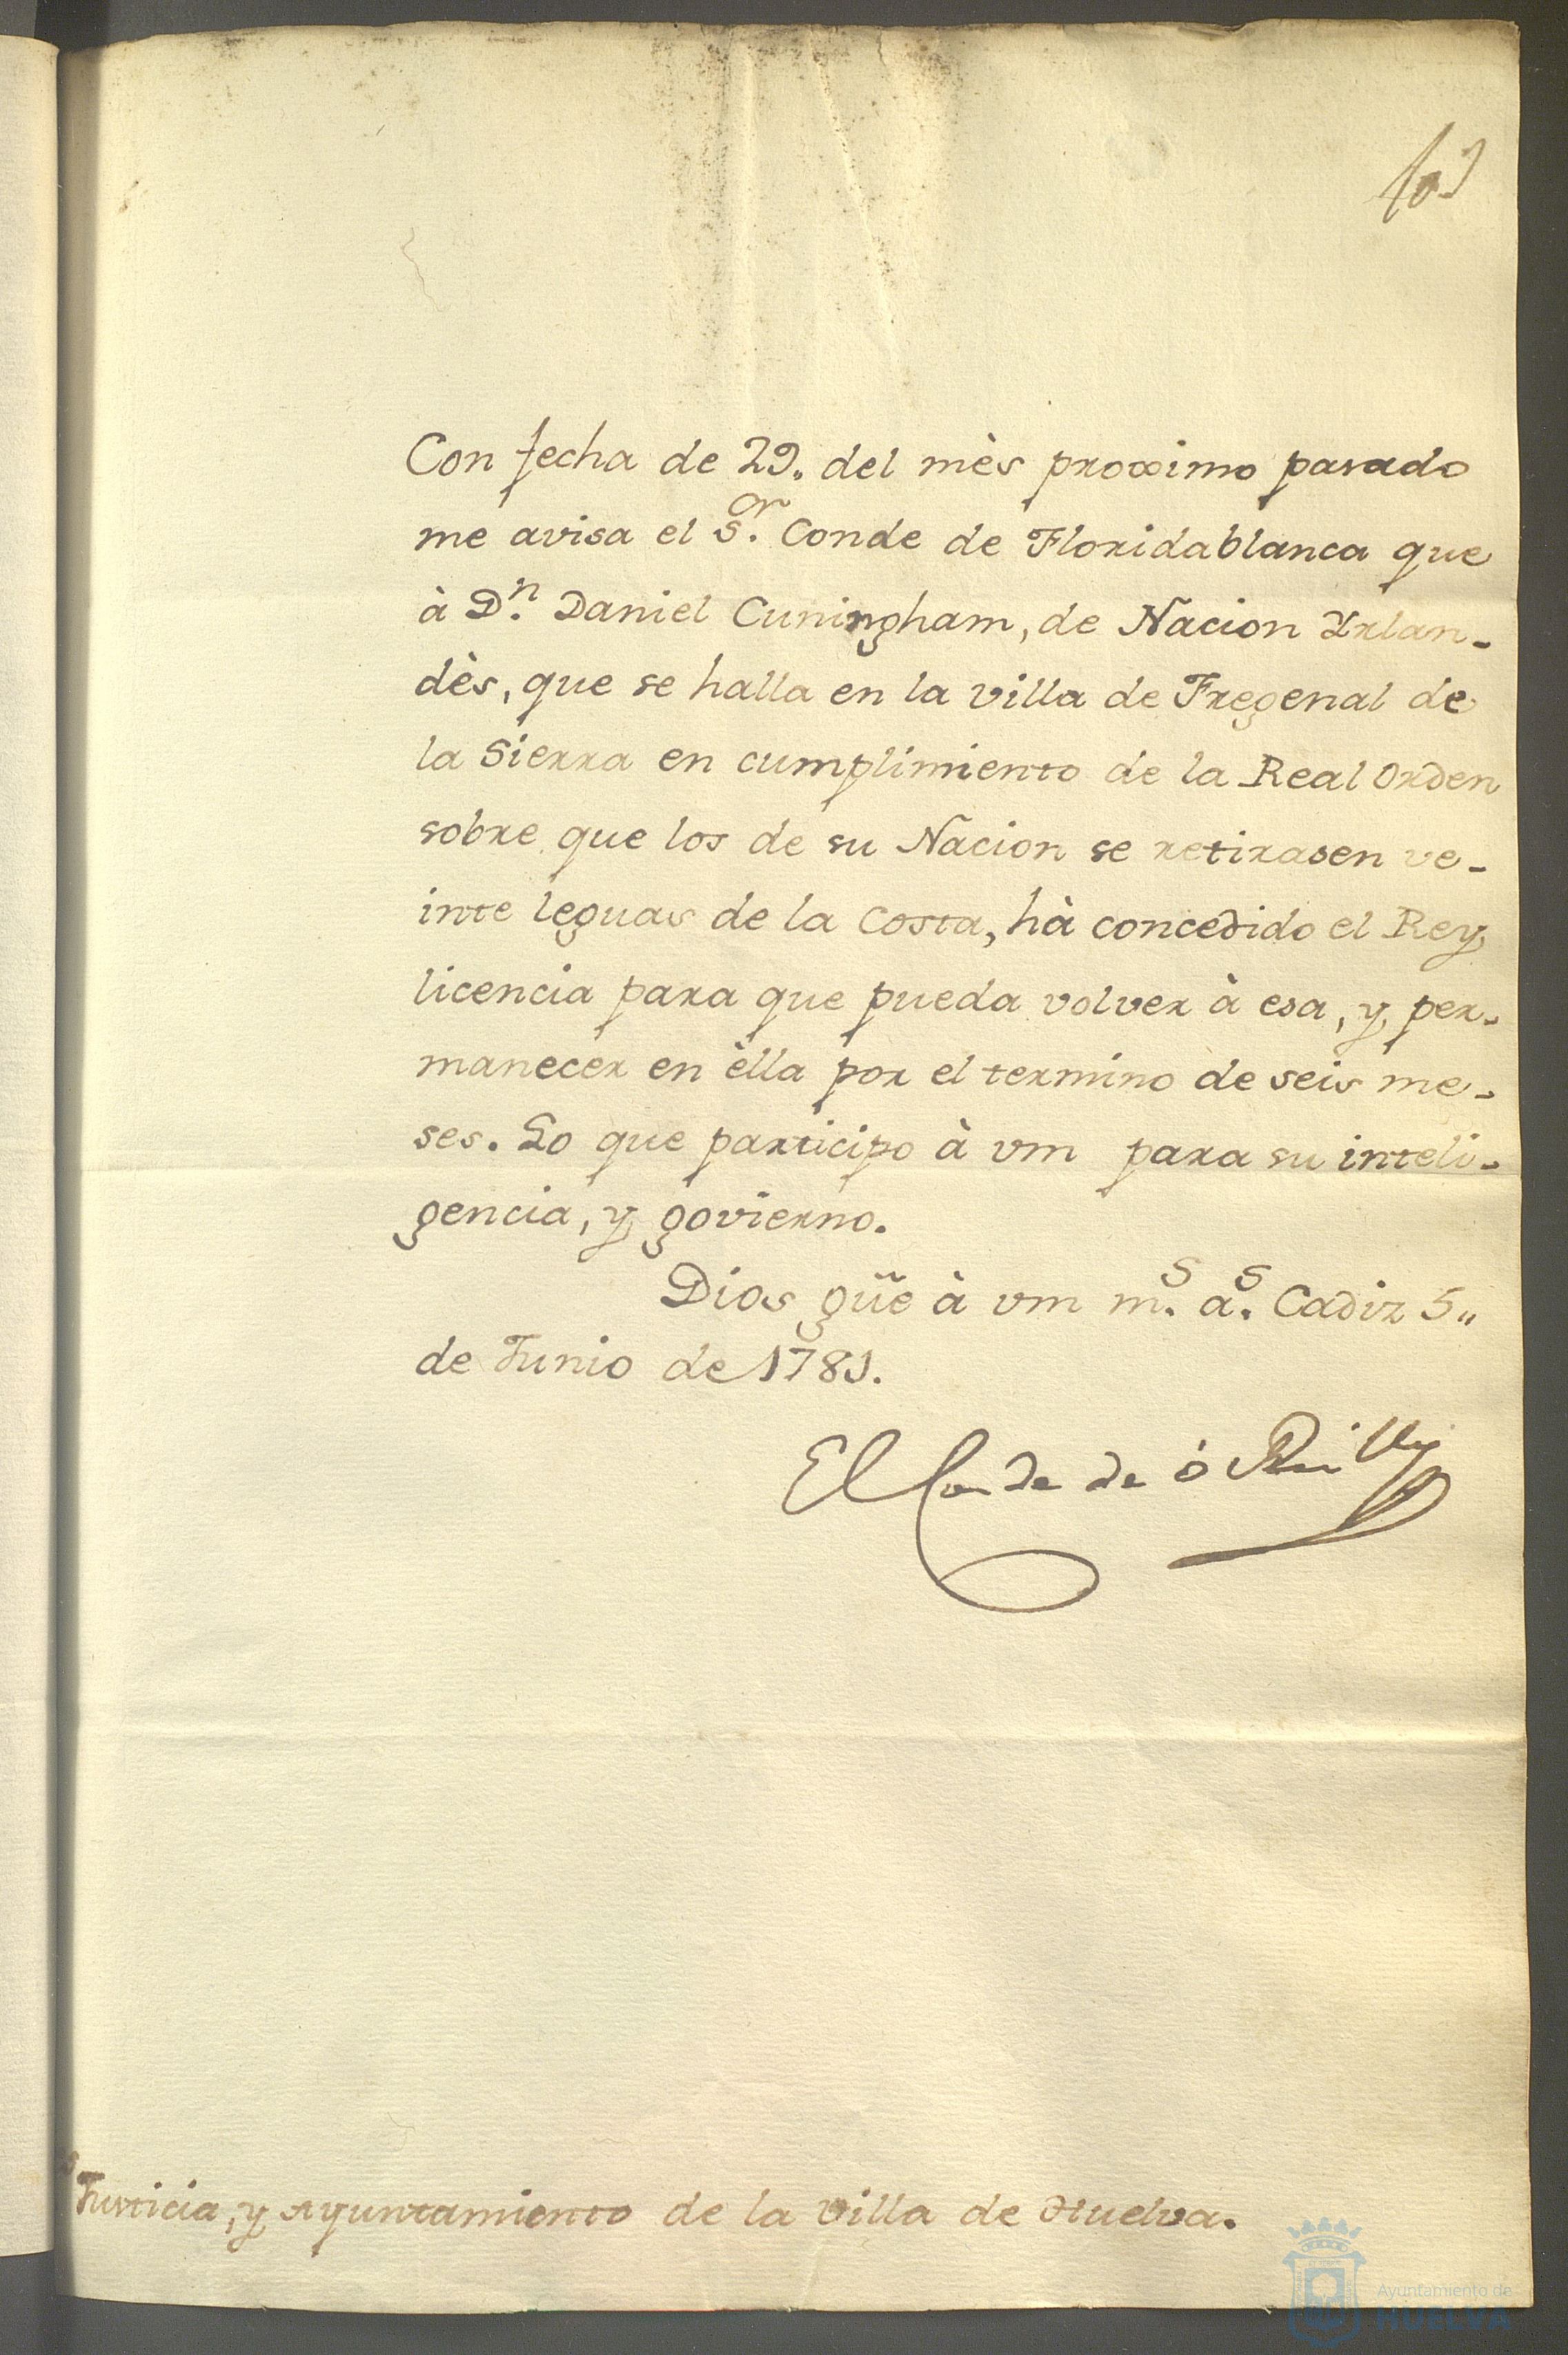 Con fecha de 29. del mès proximo pasado
me avisa el Sor. Conde de Floridablanca que
à Dn. Daniel Cuningham, de Nacion Yrlan-
dès, que se halla en la villa de Fregenal de
la Sierra en cumplimiento de la Real Orden
sobre que los de su Nacion se retirasen ve-
inte leguas de la Costa, hà concedido el Rey
licencia para que pueda volver à esa, y per-
manecer en èlla por el termino de seis me-
ses. Lo que participo à vm para su inteli-
gencia, y govierno.
Dios güe à vm ms. as. Cadiz 5"
de Junio de 1781.
El Conde de ó Reilly
Justicia, y Ayuntamiento de la villa de Huelva.
Ayuntamiento de
HUELVA